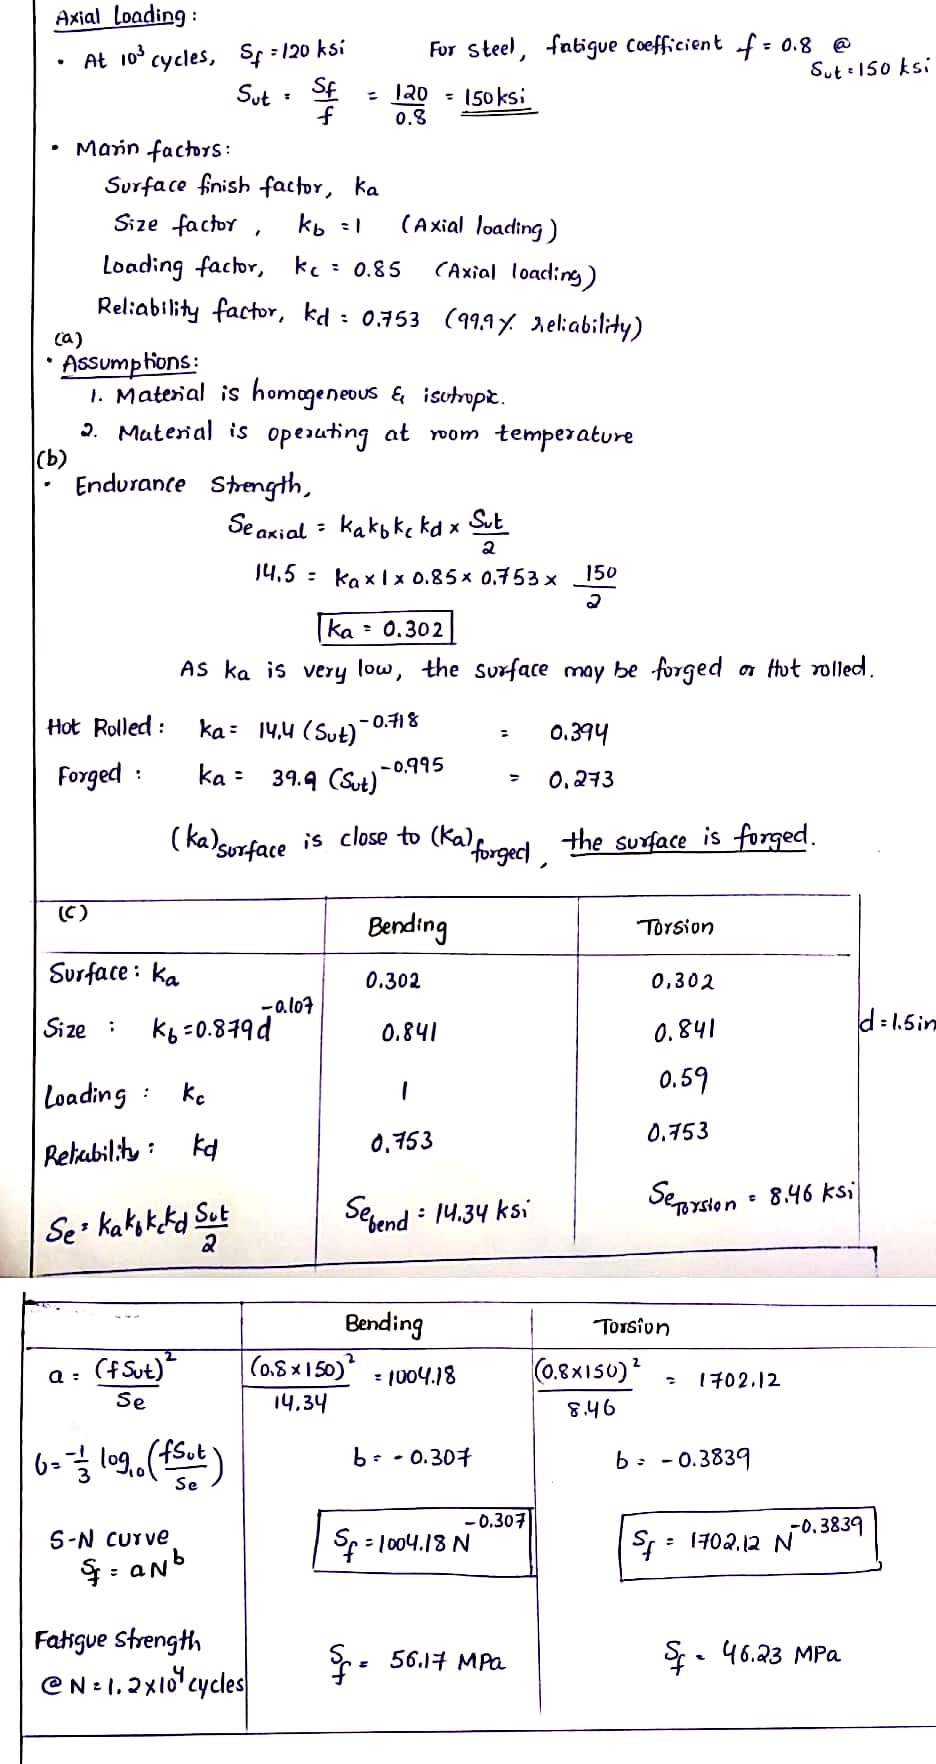 Axial Loading:
• At 10³ cycles, Sf = 120 ksi For steel, fatigue coefficient f = 0.8 @
Sut = 150 ksi
Sut = Sf/f = 120/0.8 = 150 ksi
• Marin factors:
Surface finish factor, ka
Size factor, kb = 1 (Axial loading)
Loading factor, kc = 0.85 (Axial loading)
Reliability factor, kd = 0.753 (99.9% reliability)
(a)
• Assumptions:
1. Material is homogeneous & isotropic.
2. Material is operating at room temperature
(b)
• Endurance Strength,
Se axial = ka kb kc kd × Sut/2
14.5 = ka × 1 × 0.85 × 0.753 × 150/2
ka = 0.302
As ka is very low, the surface may be forged or Hot rolled.
Hot Rolled: ka = 14.4 (Sut)^-0.718 = 0.394
Forged: ka = 39.9 (Sut)^-0.995 = 0.273
(ka)surface is close to (ka)forged, the surface is forged.
(c) Bending Torsion
Surface: ka 0.302 0.302
Size: kb = 0.879d^-0.107 0.841 0.841 d = 1.5in
Loading: kc 1 0.59
Reliability: kd 0.753 0.753
Se = ka kb kc kd Sut/2 Se bend = 14.34 ksi Se Torsion = 8.46 ksi
Bending Torsion
a = (f Sut)²/Se (0.8×150)²/14.34 = 1004.18 (0.8×150)²/8.46 = 1702.12
b = -1/3 log10 (f Sut/Se) b = -0.307 b = -0.3839
S-N curve
Sf = aN^b Sf = 1004.18 N^-0.307 Sf = 1702.12 N^-0.3839
Fatigue Strength
@ N = 1.2×10⁴ cycles Sf = 56.17 MPa Sf = 46.23 MPa